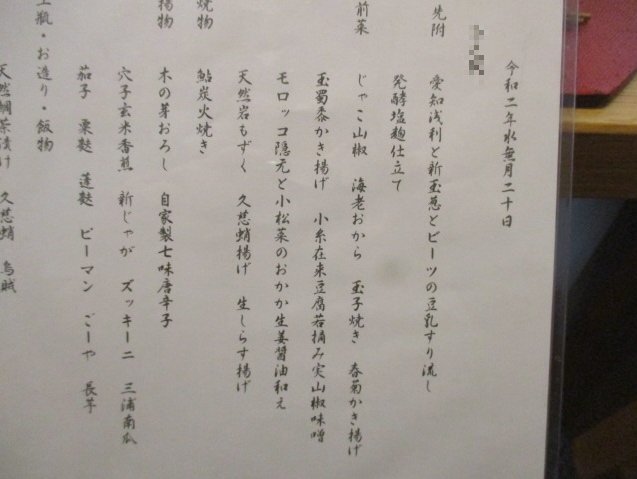 令和二年水無月二十日
先附　愛知浅利と新玉葱とビーツの豆乳すり流し
発酵塩麹仕立て
前菜　じゃこ山椒　海老おから　玉子焼き　春菊かき揚げ
玉蜀黍かき揚げ　小糸在来豆腐若摘み実山椒味噌
モロッコ隠元と小松菜のおかか生姜醤油和え
天然岩もずく　久慈蛸揚げ　生しらす揚げ
焼物　鮎炭火焼き
揚物　木の芽おろし　自家製七味唐辛子
穴子玄米香煎　新じゃが　ズッキーニ　三浦南瓜
茄子　粟麩　蓬麩　ピーマン　ごーや　長芋
瓶・お造り・飯物
天然鯛茶漬け　久慈蛸　烏賊